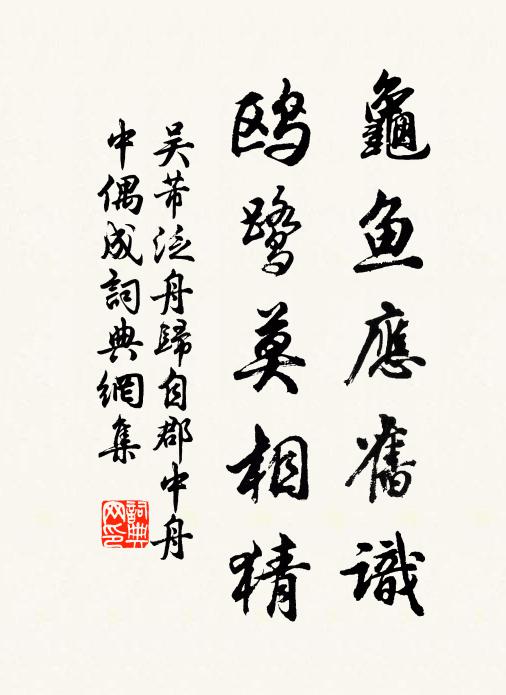 龜魚應舊識
鸥鹭莫相猜
吴芾泛舟歸自郡中舟
中偶成詞典網集
詞典网印